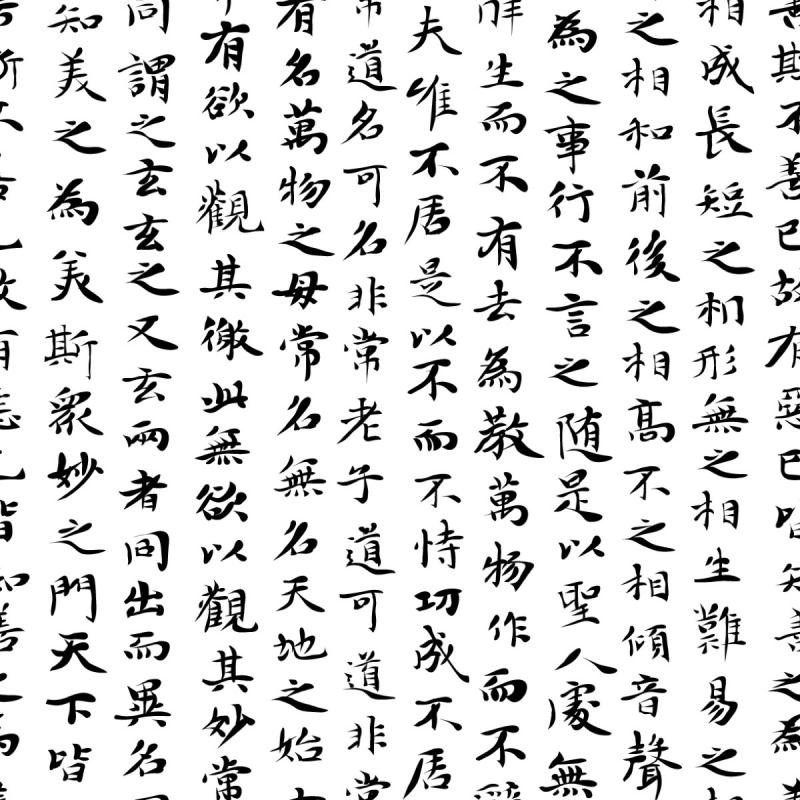 善斯不善已故有惡已皆知善之為
相成長短之相形無之相生難易之相
之相和前後之相高不之相傾音聲
為之事行不言之随是以聖人處無
生而不有去為教萬物作而不
夫唯不居是以不而不恃功成不居
常道名可名非常老子道可道非常
有名萬物之母常名無名天地之始
有欲以觀其徼此無欲以觀其妙常
同謂之玄玄之又玄兩者同出而異名
知美之為美斯眾妙之門天下皆